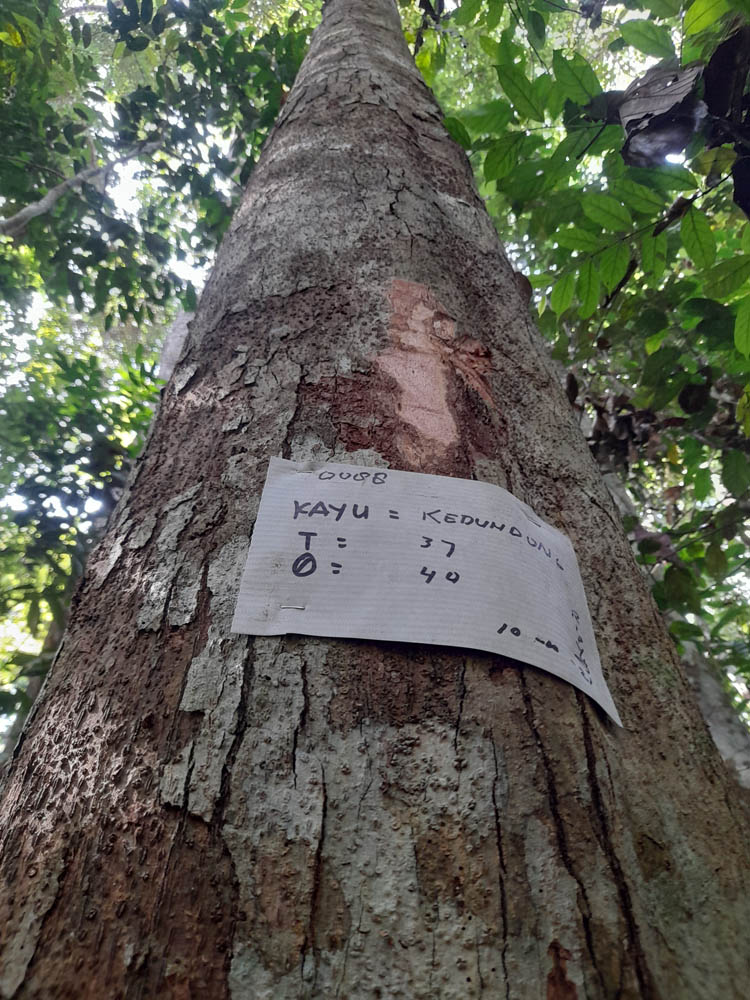 0088
KAYU = KEDUNDONG
T = 37
Ø = 40